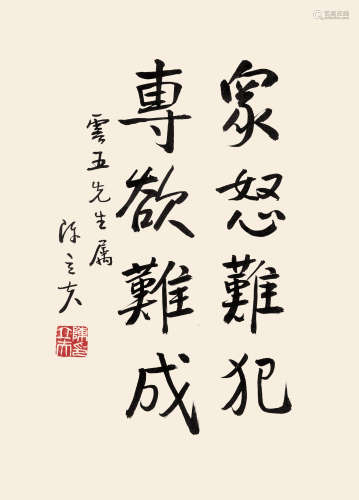 眾怒難犯
專欲難成
雲五先生属
陳立夫